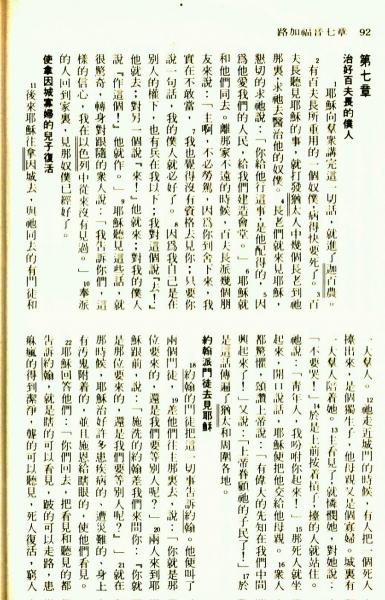 路加福音七章 92
第七章
治好百夫長的僕人
1 耶穌向羣衆講完這一切話，就進了迦百農。
2 有百夫長所重用的一個奴僕，病得快要死了。3 百
夫長聽見耶穌的事，就打發猶太人中幾個長老到祂
那裏，求祂去醫治他的奴僕。4 長老們就來見耶穌，
懇切的求祂說：「你給他行這事是他配得的，5 因
爲他愛我們的人民，給我們建造會堂。」6 耶穌就
和他們同去。離那家不遠的時候，百夫長派幾個朋
友來說：「主啊，不必勞駕，因爲你到舍下來，我
實在不敢當，7 我也覺得沒有資格去見你；只要你
說一句話，我的僕人就必好了。8 因爲我自己是在
別人的權下，也有兵在我以下；我對這個說『去！』
他就去；對另一個說『來！』他就來；對我的僕人
說『作這個！』他就作。」9 耶穌聽見這些話，就
很驚奇，轉身對跟隨的衆人說：「我告訴你們，這
樣的信心，我在以色列中從來沒有見過。」10 奉派
的人回到家裏，見那奴僕已經好了。
使拿因城寡婦的兒子復活
11 後來耶穌往拿因城去，與祂同去的有門徒和
一大羣人。12 祂走近城門的時候，有人把一個死人
擡出來，是個獨生子，他母親又是個寡婦。城裏有
一大羣人陪着她。13 主看見了，就憐憫她，對她說：
「不要哭！」14 於是上前按着槓子，擡的人就站住。
祂說：「青年人，我吩咐你起來！」15 那死人就坐
起來，開口說話，耶穌便把他交給他母親。16 衆人
都驚懼，頌讚上帝說：「有偉大的先知在我們中間
興起來了！」又說：「上帝眷顧祂的子民了！」17 於
是這話傳遍了猶太和周圍各地。
約翰派門徒去見耶穌
18 約翰的門徒把這一切事告訴約翰。他便叫了
兩個門徒，19 差他們到主那裏去，說：「你就是那
位要來的，還是我們要等別人呢？」20 兩人來到耶
穌跟前，說：「施洗的約翰差我們來問你：『你就
是那位要來的，還是我們要等別人呢？』」21 就在
那時候，耶穌治好許多患疾病的，遭災難的，身上
有汚鬼附着的，並且施恩給瞎眼的，使他們看見。
22 耶穌回答他們：「你們回去，把看見和聽見的都
告訴約翰，就是瞎的可以看見，跛的可以走路，患
麻瘋的得到潔淨，聾的可以聽見，死人復活，窮人